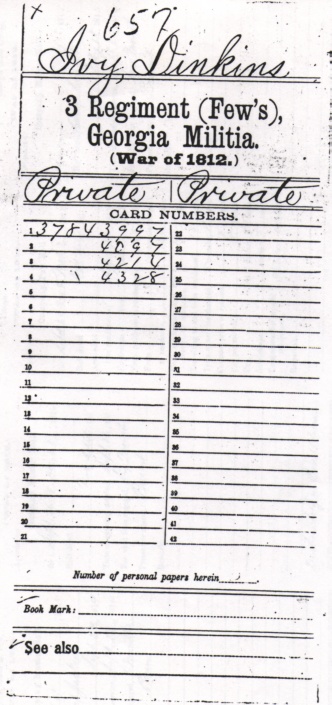 x
657
Ivy Dinkins
3 Regiment (Few's),
Georgia Militia.
(War of 1812.)
Private | Private
CARD NUMBERS.
1 37843997 22
2 4097 23
3 4214 24
4 4328 25
5 26
6 27
7 28
8 29
9 30
10 31
11 32
12 33
13 34
14 35
15 36
16 37
17 38
18 39
19 40
20 41
21 42
Number of personal papers herein
Book Mark:
See also